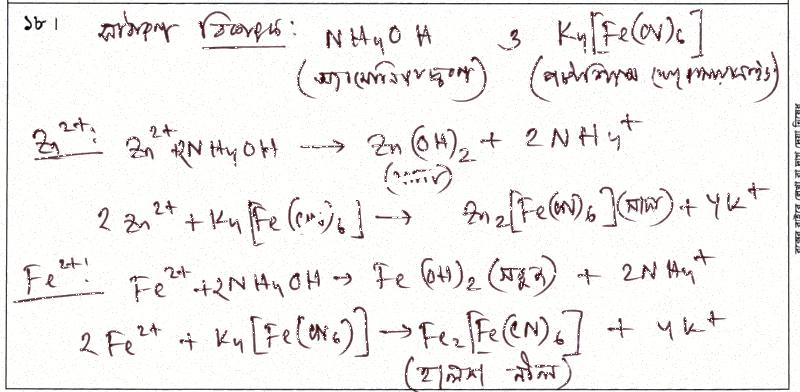 ১৮। সাধারণ বিকারক: NH4OH ও K4[Fe(CN)6]
(অ্যামোনিয়াম দ্রবণ) (পটাশিয়াম ফেরোসায়ানাইড)
Zn²⁺: Zn²⁺ + 2NH4OH → Zn(OH)2 + 2NH4⁺
(সাদা)
2Zn²⁺ + K4[Fe(CN)6] → Zn2[Fe(CN)6](সাদা) + 4K⁺
Fe²⁺: Fe²⁺ + 2NH4OH → Fe(OH)2 (সবুজ) + 2NH4⁺
2Fe²⁺ + K4[Fe(CN6)] → Fe2[Fe(CN)6] + 4K⁺
(হালকা নীল)